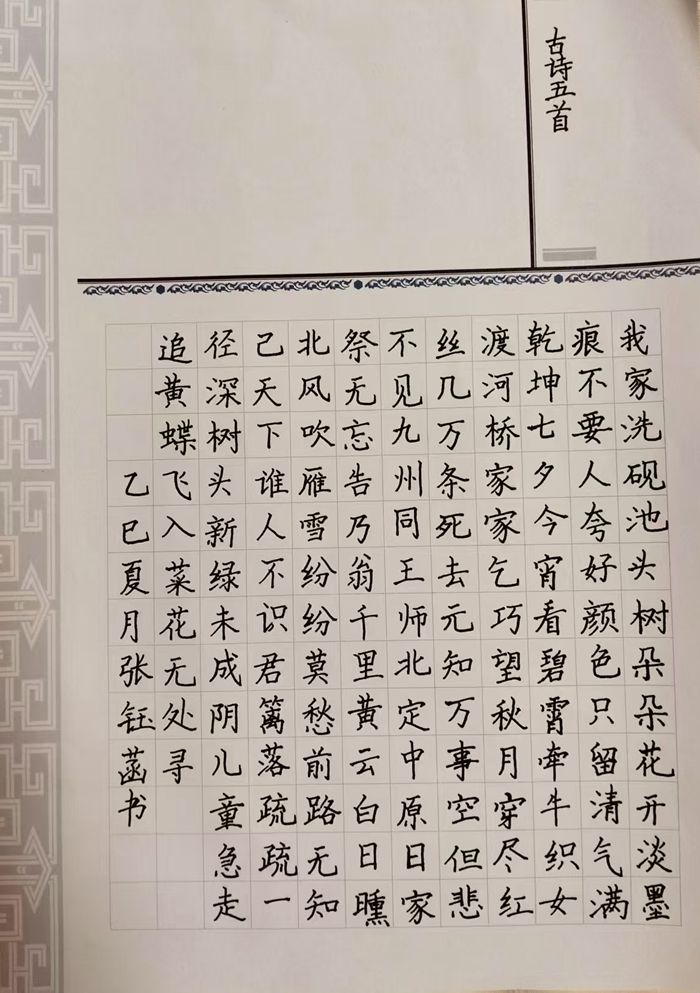 古诗五首
我家洗砚池头树朵朵花开淡墨
痕不要人夸好颜色只留清气满
乾坤七夕今宵看碧霄牵牛织女
渡河桥家家乞巧望秋月穿尽红
丝几万条死去元知万事空但悲
不见九州同王师北定中原日家
祭无忘告乃翁千里黄云白日曛
北风吹雁雪纷纷莫愁前路无知
己天下谁人不识君篱落疏疏一
径深树头新绿未成阴儿童急走
追黄蝶飞入菜花无处寻
乙巳夏月张钰菡书